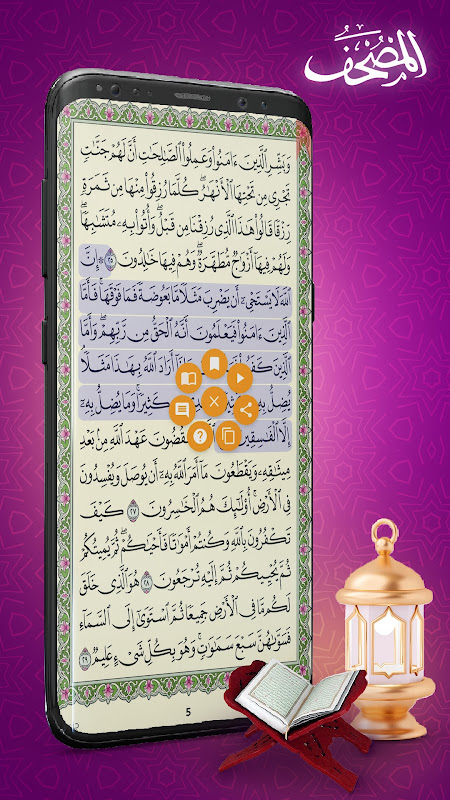 المصحف
وَبَشِّرِ ٱلَّذِينَ ءَامَنُوا۟ وَعَمِلُوا۟ ٱلصَّـٰلِحَـٰتِ أَنَّ لَهُمْ جَنَّـٰتٍ
تَجْرِى مِن تَحْتِهَا ٱلْأَنْهَـٰرُ ۖ كُلَّمَا رُزِقُوا۟ مِنْهَا مِن ثَمَرَةٍ
رِّزْقًا قَالُوا۟ هَـٰذَا ٱلَّذِى رُزِقْنَا مِن قَبْلُ ۖ وَأُتُوا۟ بِهِۦ مُتَشَـٰبِهًا ۖ
وَلَهُمْ فِيهَآ أَزْوَٰجٌ مُّطَهَّرَةٌ ۖ وَهُمْ فِيهَا خَـٰلِدُونَ ٢٥ ۞ إِنَّ
ٱللَّهَ لَا يَسْتَحْىِۦٓ أَن يَضْرِبَ مَثَلًا مَّا بَعُوضَةً فَمَا فَوْقَهَا ۚ فَأَمَّا
ٱلَّذِينَ ءَامَنُوا۟ فَيَعْلَمُونَ أَنَّهُ ٱلْحَقُّ مِن رَّبِّهِمْ ۖ وَأَمَّا
ٱلَّذِينَ كَفَرُوا۟ أَرَادَ ٱللَّهُ بِهَـٰذَا مَثَلًا ۘ
يُضِلُّ بِهِۦ كَثِيرًا ۚ وَمَا يُضِلُّ بِهِۦٓ
إِلَّا ٱلْفَـٰسِقِينَ يَنقُضُونَ عَهْدَ ٱللَّهِ مِنۢ بَعْدِ
مِيثَـٰقِهِۦ وَيَقْطَعُونَ مَآ أَمَرَ ٱللَّهُ بِهِۦٓ أَن يُوصَلَ وَيُفْسِدُونَ
فِى ٱلْأَرْضِ ۚ أُو۟لَـٰٓئِكَ هُمُ ٱلْخَـٰسِرُونَ ٢٧ كَيْفَ
تَكْفُرُونَ بِٱللَّهِ وَكُنتُمْ أَمْوَٰتًا فَأَحْيَـٰكُمْ ۖ ثُمَّ يُمِيتُكُمْ
ثُمَّ يُحْيِيكُمْ ثُمَّ إِلَيْهِ تُرْجَعُونَ ٢٨ هُوَ ٱلَّذِى خَلَقَ
لَكُم مَّا فِى ٱلْأَرْضِ جَمِيعًا ثُمَّ ٱسْتَوَىٰٓ إِلَى ٱلسَّمَآءِ
فَسَوَّىٰهُنَّ سَبْعَ سَمَـٰوَٰتٍ ۚ وَهُوَ بِكُلِّ شَىْءٍ عَلِيمٌ ٢٩
5